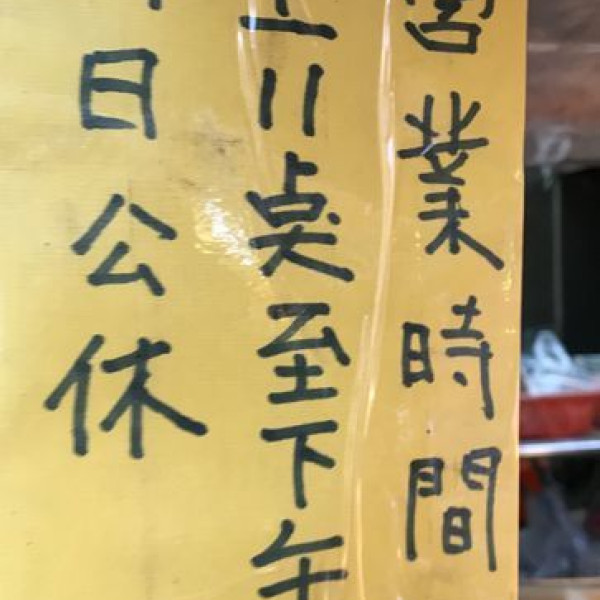 營業時間
上11奌至下午
日公休